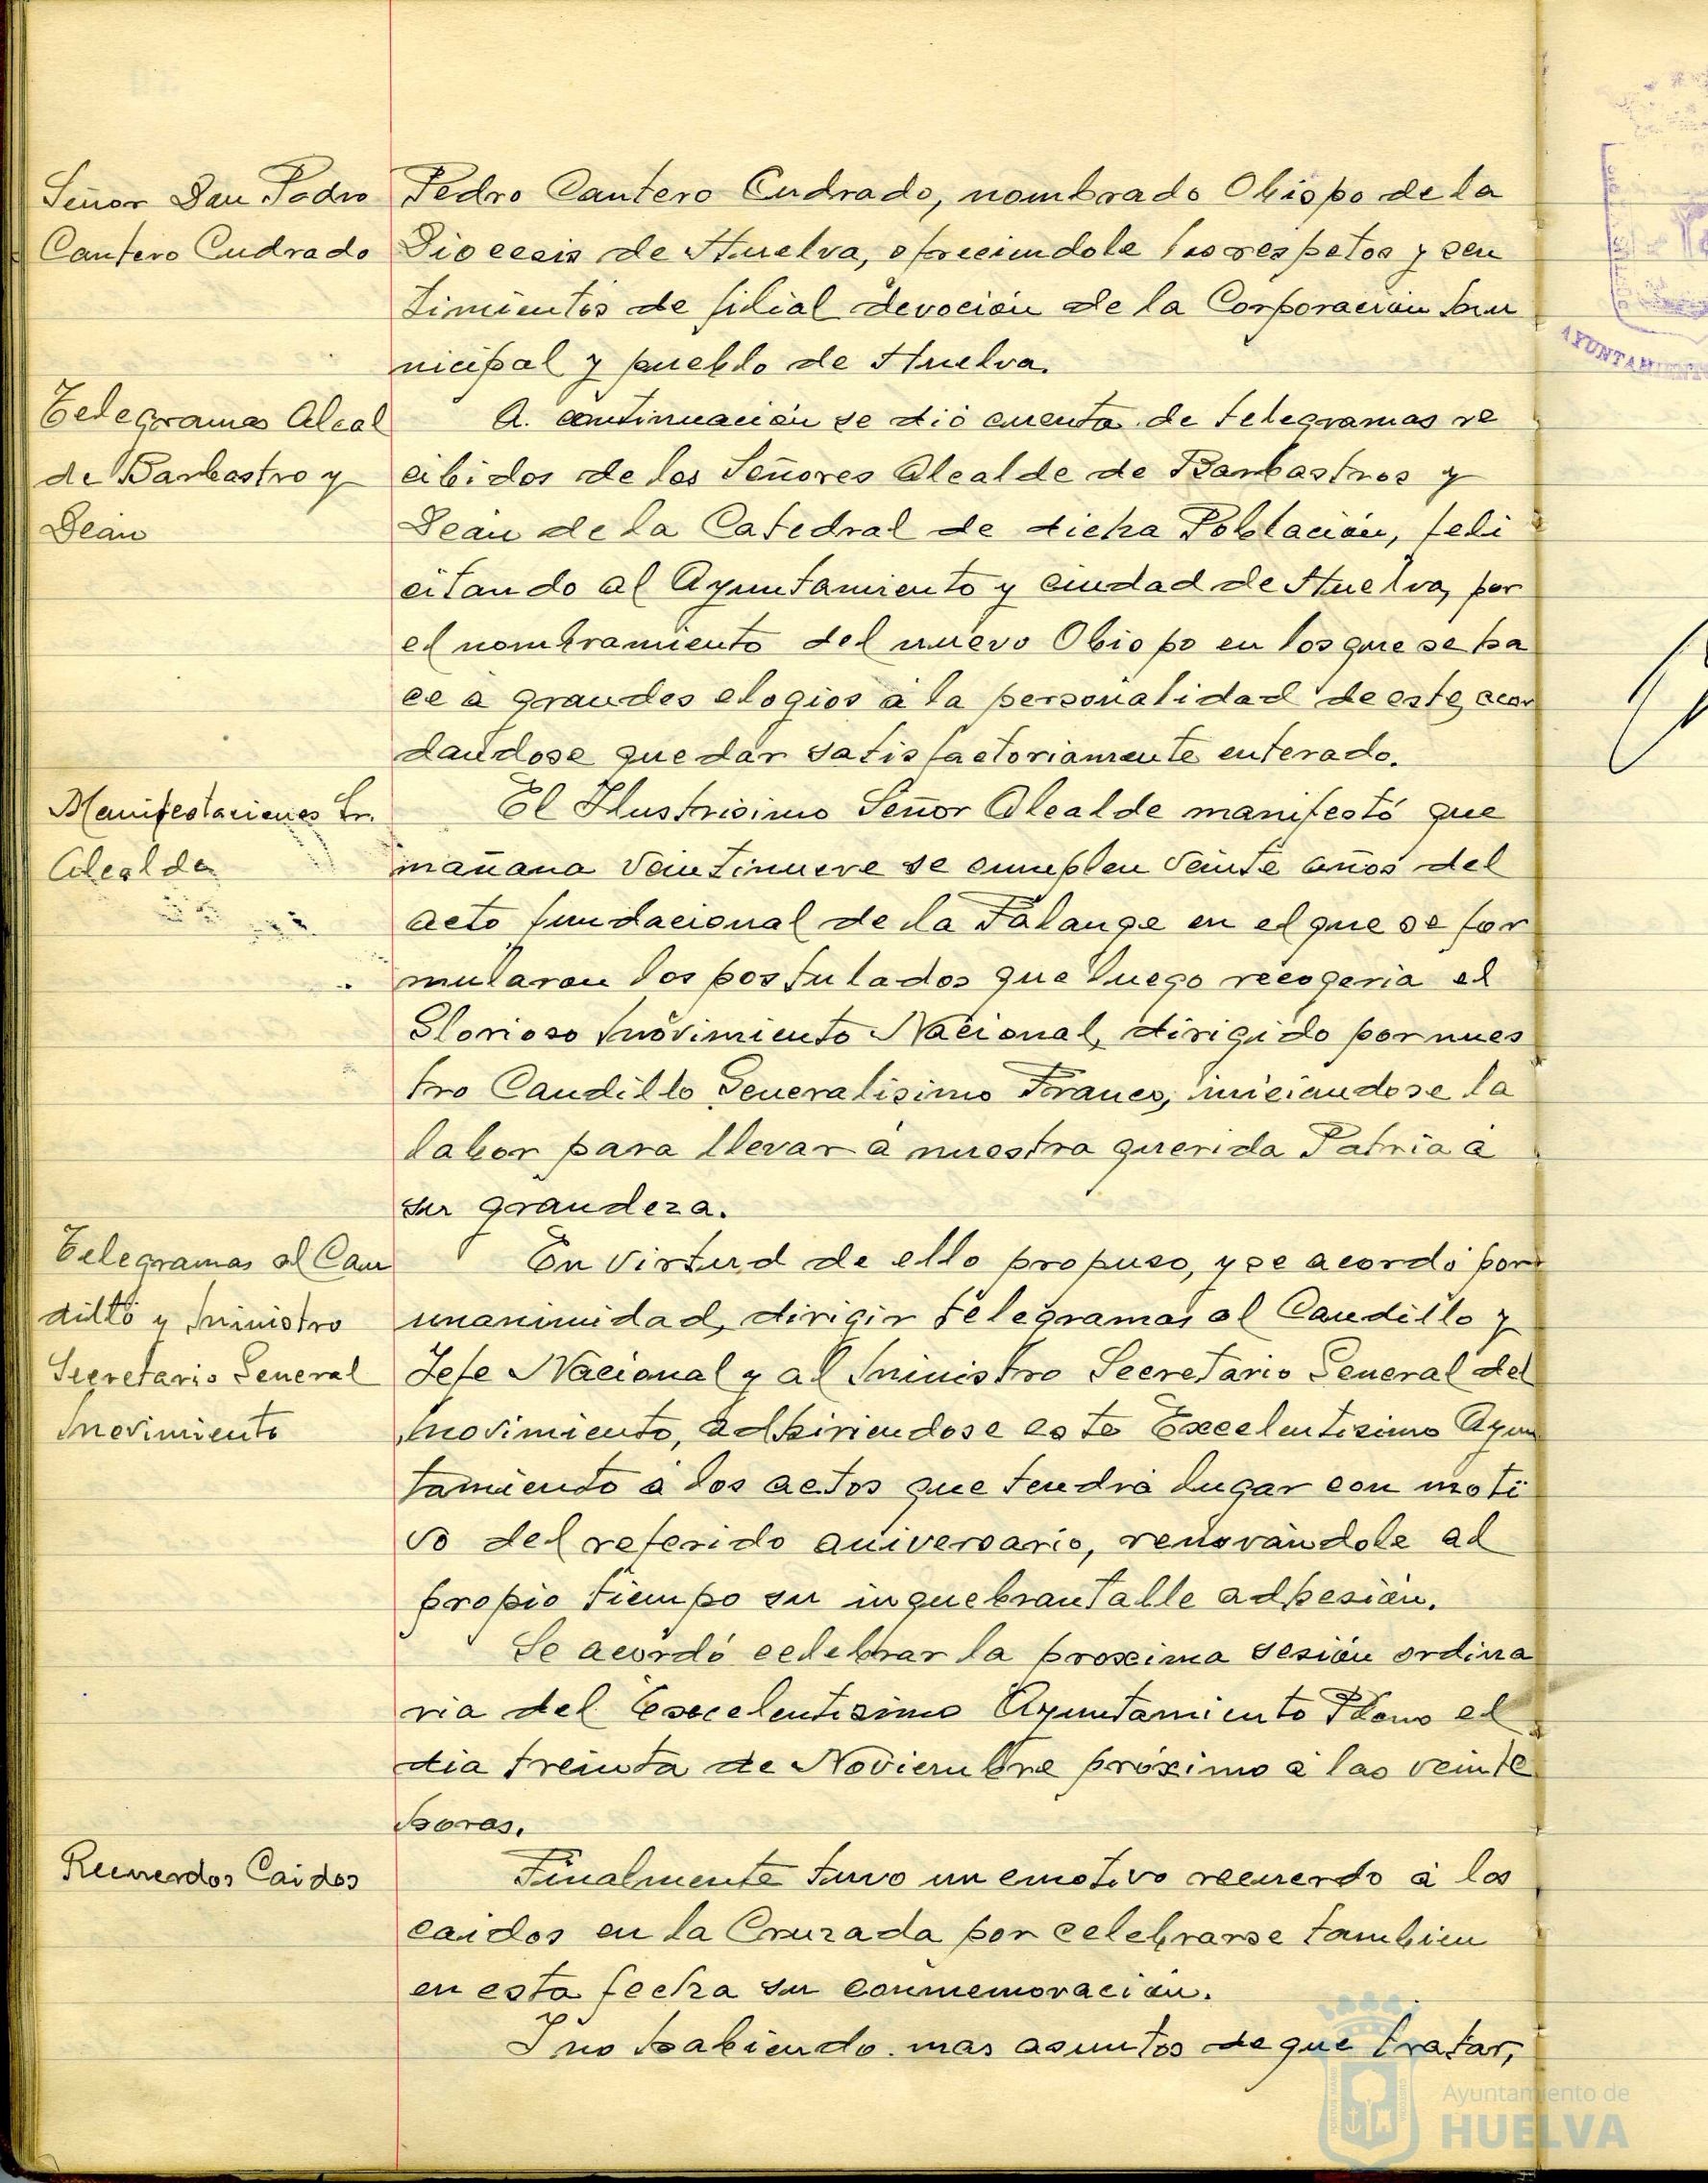 Señor Don Pedro
Cantero Cudrado
Pedro Cantero Cudrado, nombrado Obispo de la
Diocesis de Huelva, ofreciendole los respetos y sen
timientos de filial devoción de la Corporación Mu
nicipal y pueblo de Huelva.
Telegramas Alcal
de Barbastro y
Dean
A continuación se dió cuenta de telegramas re
cibidos de los Señores Alcalde de Barbastros y
Dean de la Catedral de dicha Población, feli
citando al Ayuntamiento y ciudad de Huelva, por
el nombramiento del nuevo Obispo en los que se ha
ce a grandes elogios a la personalidad de este, acor
dandose quedar satisfactoriamente enterado.
Manifestaciones Sr.
Alcalde
El Ilustrisimo Señor Alcalde manifestó que
mañana veintinueve se cumplen veinte años del
acto fundacional de la Falange en el que se for
mularon los postulados que luego recogeria el
Glorioso Movimiento Nacional, dirigido por nues
tro Caudillo Generalisimo Franco, iniciandose la
labor para llevar a nuestra querida Patria a
su grandeza.
Telegramas al Cau
dillo y Ministro
Secretario General
Movimiento
En virtud de ello propuso, y se acordó por
unanimidad, dirigir telegramas al Caudillo y
Jefe Nacional y al Ministro Secretario General del
Movimiento, adhiriendose este Excelentisimo Ayun
tamiento a los actos que tendrá lugar con moti
vo del referido aniversario, renovándole al
propio tiempo su inquebrantable adhesión.
Se acordó celebrar la proxima sesión ordina
ria del Excelentisimo Ayuntamiento Pleno el
dia treinta de Noviembre próximo a las veinte
horas.
Recuerdos Caidos
Finalmente tuvo un emotivo recuerdo a los
caidos en la Cruzada por celebrarse tambien
en esta fecha su conmemoración.
Y no habiendo mas asuntos de que tratar,
Ayuntamiento de
HUELVA